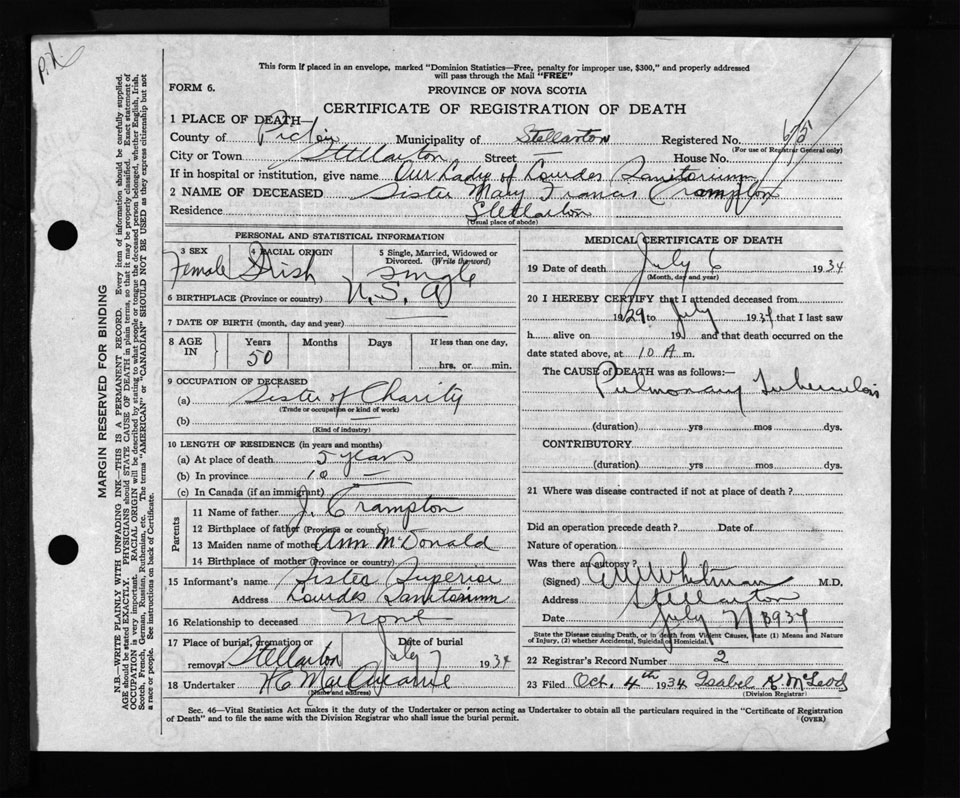 This form if placed in an envelope, marked "Dominion Statistics—Free, penalty for improper use, $300," and properly addressed
will pass through the Mail "FREE"
FORM 6.
PROVINCE OF NOVA SCOTIA
CERTIFICATE OF REGISTRATION OF DEATH
1 PLACE OF DEATH—
County of Pictou Municipality of Stellarton Registered No.
(For use of Registrar General only)
City or Town Stellarton Street — House No.
If in hospital or institution, give name Our Lady of Lourdes Sanitorium
2 NAME OF DECEASED Sister Mary Francis Crampton
Residence Stellarton
(Usual place of abode)
PERSONAL AND STATISTICAL INFORMATION
3 SEX 4 RACIAL ORIGIN 5 Single, Married, Widowed or Divorced. (Write the word)
Female Irish Single
6 BIRTHPLACE (Province or country) U.S.A
7 DATE OF BIRTH (month, day and year)
8 AGE IN Years Months Days If less than one day,
50 hrs. or min.
9 OCCUPATION OF DECEASED
(a) Sister of Charity
(Trade or occupation or kind of work)
(b) —
(Kind of industry)
10 LENGTH OF RESIDENCE (in years and months)
(a) At place of death 5 years
(b) In province 10 —
(c) In Canada (if an immigrant) —
Parents
11 Name of father J. Crampton
12 Birthplace of father (Province or country)
13 Maiden name of mother Ann McDonald
14 Birthplace of mother (Province or country)
15 Informant's name Sister Superior
Address Lourdes Sanitorium
16 Relationship to deceased none
17 Place of burial, cremation or removal Stellarton Date of burial July 7 1934
18 Undertaker
(Name and address)
MEDICAL CERTIFICATE OF DEATH
19 Date of death July 6 1934
(Month, day and year)
20 I HEREBY CERTIFY that I attended deceased from
1929 to July 1934 that I last saw
h alive on 19 and that death occurred on the
date stated above, at 10 A m.
The CAUSE of DEATH was as follows:—
Pulmonary Tuberculosis
(duration) yrs mos dys.
CONTRIBUTORY
(duration) yrs mos dys.
21 Where was disease contracted if not at place of death ?
Did an operation precede death ? Date of
Nature of operation
Was there an autopsy ?
(Signed) Whitman M.D.
Address Stellarton
Date July 1934
State the Disease causing Death, or in death from Violent Causes, state (1) Means and Nature
of Injury, (2) whether Accidental, Suicidal or Homicidal.
22 Registrar's Record Number 2
23 Filed Oct. 4th 1934 Isabel K McLeod
(Division Registrar)
Sec. 46—Vital Statistics Act makes it the duty of the Undertaker or person acting as Undertaker to obtain all the particulars required in the "Certificate of Registration
of Death" and to file the same with the Division Registrar who shall issue the burial permit.
(OVER)
MARGIN RESERVED FOR BINDING
N.B.—WRITE PLAINLY WITH UNFADING INK—THIS IS A PERMANENT RECORD. Every item of information should be carefully supplied.
AGE should be stated EXACTLY. PHYSICIANS should STATE CAUSE OF DEATH in plain terms, so that it may be properly classified. Exact statement of
OCCUPATION is very important. RACIAL ORIGIN will be described by stating to what people or tongue the deceased person belonged, whether English, Irish,
Scotch, French, German, Russian, Ruthenian, etc. The terms "AMERICAN" or "CANADIAN" SHOULD NOT BE USED as they express citizenship but not
a race or people. See instructions on back of Certificate.